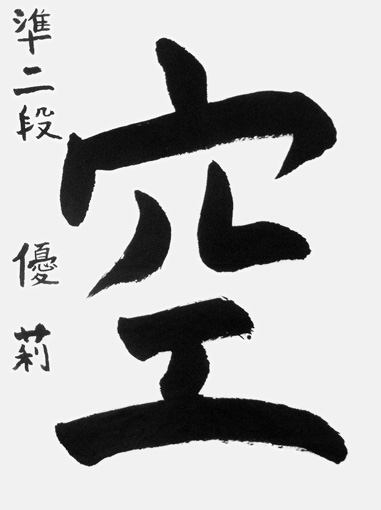 空
準二段 優莉